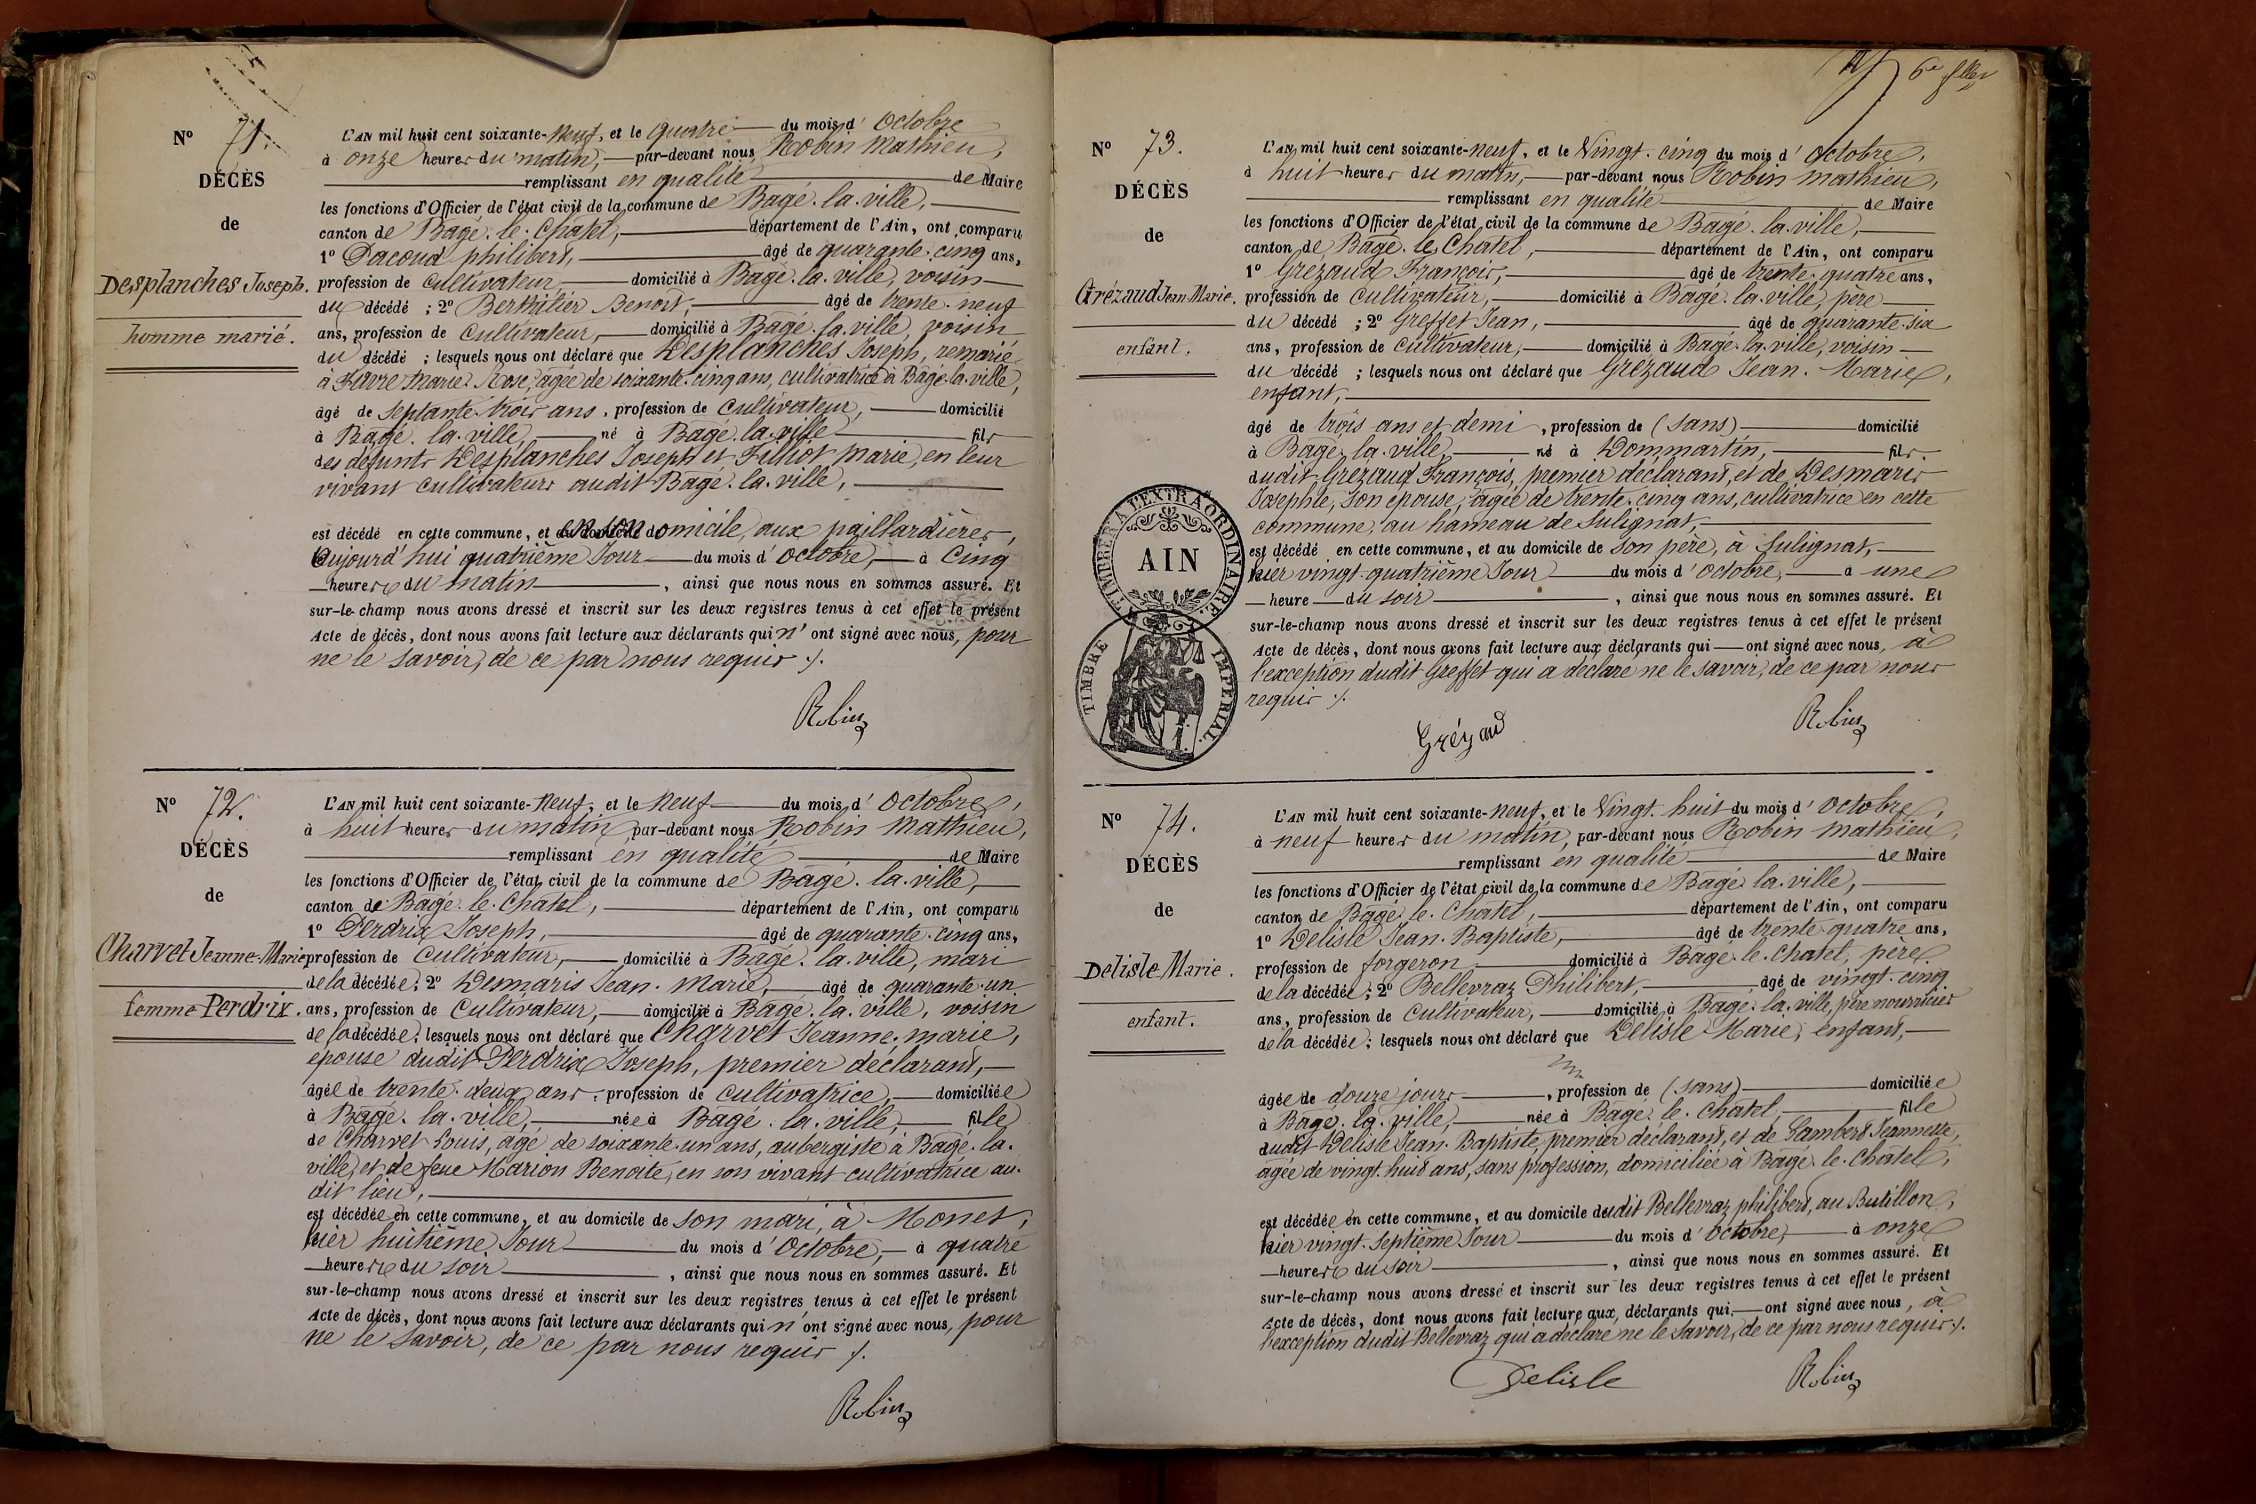 N° 71.
DÉCÈS
de
Desplanches Joseph.
homme marié.
L'AN mil huit cent soixante-neuf, et le quatre du mois d'Octobre
à onze heures du matin, par-devant nous Robin Mathieu,
remplissant en qualité de Maire
les fonctions d'Officier de l'état civil de la commune de Bagé-la-ville,
canton de Bagé-le-Chatel, département de l'Ain, ont comparu
1° Dacoud philibert, âgé de quarante-cinq ans,
profession de Cultivateur domicilié à Bagé-la-ville, voisin
du décédé ; 2° Berthilier Benoit, âgé de trente-neuf
ans, profession de Cultivateur, domicilié à Bagé-la-ville, voisin
du décédé ; lesquels nous ont déclaré que Desplanches Joseph, remarié
à Favre Marie-Rose, âgée de soixante-cinq ans, cultivatrice à Bagé-la-ville,
âgé de septante-trois ans, profession de Cultivateur, domicilié
à Bagé-la-ville, né à Bagé-la-ville fils
des défunts Desplanches Joseph et Filliot Marie, en leur
vivant cultivateurs audit Bagé-la-ville,
est décédé en cette commune, et en son domicile, aux paillardières,
Aujourd'hui quatrième Jour du mois d'Octobre, à Cinq
heures du matin, ainsi que nous nous en sommes assuré. Et
sur-le-champ nous avons dressé et inscrit sur les deux registres tenus à cet effet le présent
Acte de décès, dont nous avons fait lecture aux déclarants qui n'ont signé avec nous, pour
ne le savoir, de ce par nous requis ./.
Robin
N° 72.
DÉCÈS
de
Charvet Jeanne-Marie
femme Perdrix.
L'AN mil huit cent soixante-neuf, et le neuf du mois d'Octobre,
à huit heures du matin par-devant nous Robin Mathieu,
remplissant en qualité de Maire
les fonctions d'Officier de l'état civil de la commune de Bagé-la-ville,
canton de Bagé-le-Chatel, département de l'Ain, ont comparu
1° Perdrix Joseph, âgé de quarante-cinq ans,
profession de Cultivateur, domicilié à Bagé-la-ville, mari
de la décédée ; 2° Desmaris Jean-Marie, âgé de quarante-un
ans, profession de Cultivateur, domicilié à Bagé-la-ville, voisin
de la décédée ; lesquels nous ont déclaré que Charvet Jeanne-marie,
épouse dudit Perdrix Joseph, premier déclarant,
âgée de trente-deux ans, profession de Cultivatrice, domiciliée
à Bagé-la-ville, née à Bagé-la-ville, fille
de Charvet Louis, âgé de soixante-un ans, aubergiste à Bagé-la-
ville, et de feue Marion Benoite, en son vivant cultivatrice au-
dit lieu,
est décédée en cette commune, et au domicile de son mari, à Monet,
hier huitième Jour du mois d'Octobre, à quatre
heures du soir, ainsi que nous nous en sommes assuré. Et
sur-le-champ nous avons dressé et inscrit sur les deux registres tenus à cet effet le présent
Acte de décès, dont nous avons fait lecture aux déclarants qui n'ont signé avec nous, pour
ne le savoir, de ce par nous requis ./.
Robin
6e fller
N° 73.
DÉCÈS
de
Grézaud Jean Marie.
enfant.
TIMBRE A L'EXTRAORDINAIRE
AIN
TIMBRE IMPERIAL.
L'AN mil huit cent soixante-neuf, et le Vingt-cinq du mois d'Octobre,
à huit heures du matin, par-devant nous Robin Mathieu,
remplissant en qualité de Maire
les fonctions d'Officier de l'état civil de la commune de Bagé-la-ville,
canton de Bagé-le-Chatel, département de l'Ain, ont comparu
1° Grézaud François, âgé de trente-quatre ans,
profession de Cultivateur, domicilié à Bagé-la-ville, père
du décédé ; 2° Greffet Jean, âgé de quarante-six
ans, profession de Cultivateur, domicilié à Bagé-la-ville, voisin
du décédé ; lesquels nous ont déclaré que Grézaud Jean-Marie,
enfant,
âgé de trois ans et demi, profession de (sans) domicilié
à Bagé-la-ville, né à Dommartin, fils
dudit Grézaud François, premier déclarant, et de Desmaris
Josephte, son épouse, âgée de trente-cinq ans, cultivatrice en cette
commune, au hameau de Sulignat,
est décédé en cette commune, et au domicile de son père, à Sulignat,
hier vingt-quatrième Jour du mois d'Octobre, à une
heure du soir, ainsi que nous nous en sommes assuré. Et
sur-le-champ nous avons dressé et inscrit sur les deux registres tenus à cet effet le présent
Acte de décès, dont nous avons fait lecture aux déclarants qui ont signé avec nous, à
l'exception dudit Greffet qui a déclaré ne le savoir, de ce par nous
requis ./.
Grézaud
Robin
N° 74.
DÉCÈS
de
Delisle Marie.
enfant.
L'AN mil huit cent soixante-neuf, et le Vingt-huit du mois d'Octobre,
à neuf heures du matin, par-devant nous Robin Mathieu,
remplissant en qualité de Maire
les fonctions d'Officier de l'état civil de la commune de Bagé-la-ville,
canton de Bagé-le-Chatel, département de l'Ain, ont comparu
1° Delisle Jean-Baptiste, âgé de trente-quatre ans,
profession de forgeron domicilié à Bagé-le-Chatel, père
de la décédée ; 2° Bellevraz Philibert, âgé de vingt-cinq
ans, profession de Cultivateur, domicilié à Bagé-la-ville, père nourricier
de la décédée ; lesquels nous ont déclaré que Delisle Marie, enfant,
âgée de douze jours, profession de (sans) domiciliée
à Bagé-la-ville, née à Bagé-le-Chatel, fille
dudit Delisle Jean-Baptiste, premier déclarant, et de Gambert Jeannette,
âgée de vingt-huit ans, sans profession, domiciliée à Bagé-le-Chatel,
est décédée en cette commune, et au domicile dudit Bellevraz philibert, au Butillon,
hier vingt-septième Jour du mois d'Octobre, à onze
heures du soir, ainsi que nous nous en sommes assuré. Et
sur-le-champ nous avons dressé et inscrit sur les deux registres tenus à cet effet le présent
Acte de décès, dont nous avons fait lecture aux déclarants qui ont signé avec nous, à
l'exception dudit Bellevraz qui a déclaré ne le savoir, de ce par nous requis ./.
Delisle
Robin